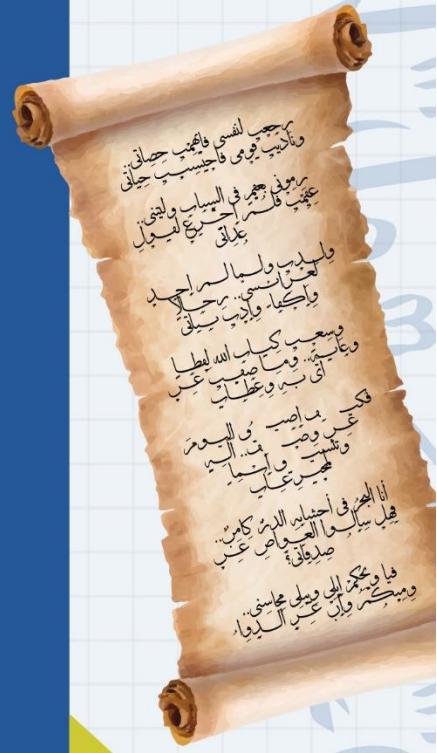 رجعت لنفسي فاتهمت حصاتي..
وناديت قومي فاحتسبت حياتي
رموني بعقم في الشباب وليتني..
عقمت فلم أجزع لقول
عداتي
ولدت ولما لم أجد
لعرائسي.. رجالا
وأكفاء وأدت بناتي
وسعت كتاب الله لفظا
وغاية.. وما ضقت عن
آي به وعظات
اليوم
عن وصف
أنا البحر في أحشائه الدر كامن..
فهل سألوا الغواص عن
صدفاتي؟
فيا ويحكم أبلى وتبلى محاسني..
ومنكم وإن عز الدواء